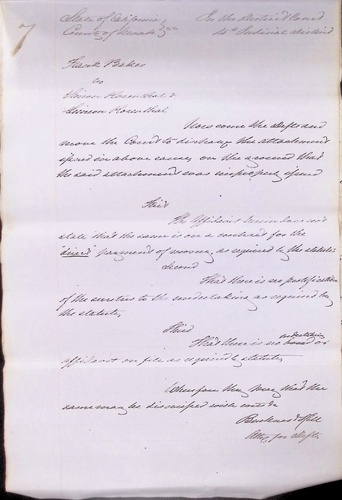 State of California
County of
In the District Court
Judicial District
Frank Baker
vs
Simon Rosenthal &
Rosenthal
Now come the defts and
move the Court to discharge the attachment
issued in above cause, on the ground that
the said attachment was improperly issued
First
The Affidavit herein does not
state that the same is on a contract for the
"direct" payment of money, as required by the statute
Second
That there is no justification
of the sureties to the undertaking as required by
the statute,
Third
That there is no undertaking or
affidavit on file as required by statute
Wherefore they pray that the
same may be dismissed with costs
Atty for defts